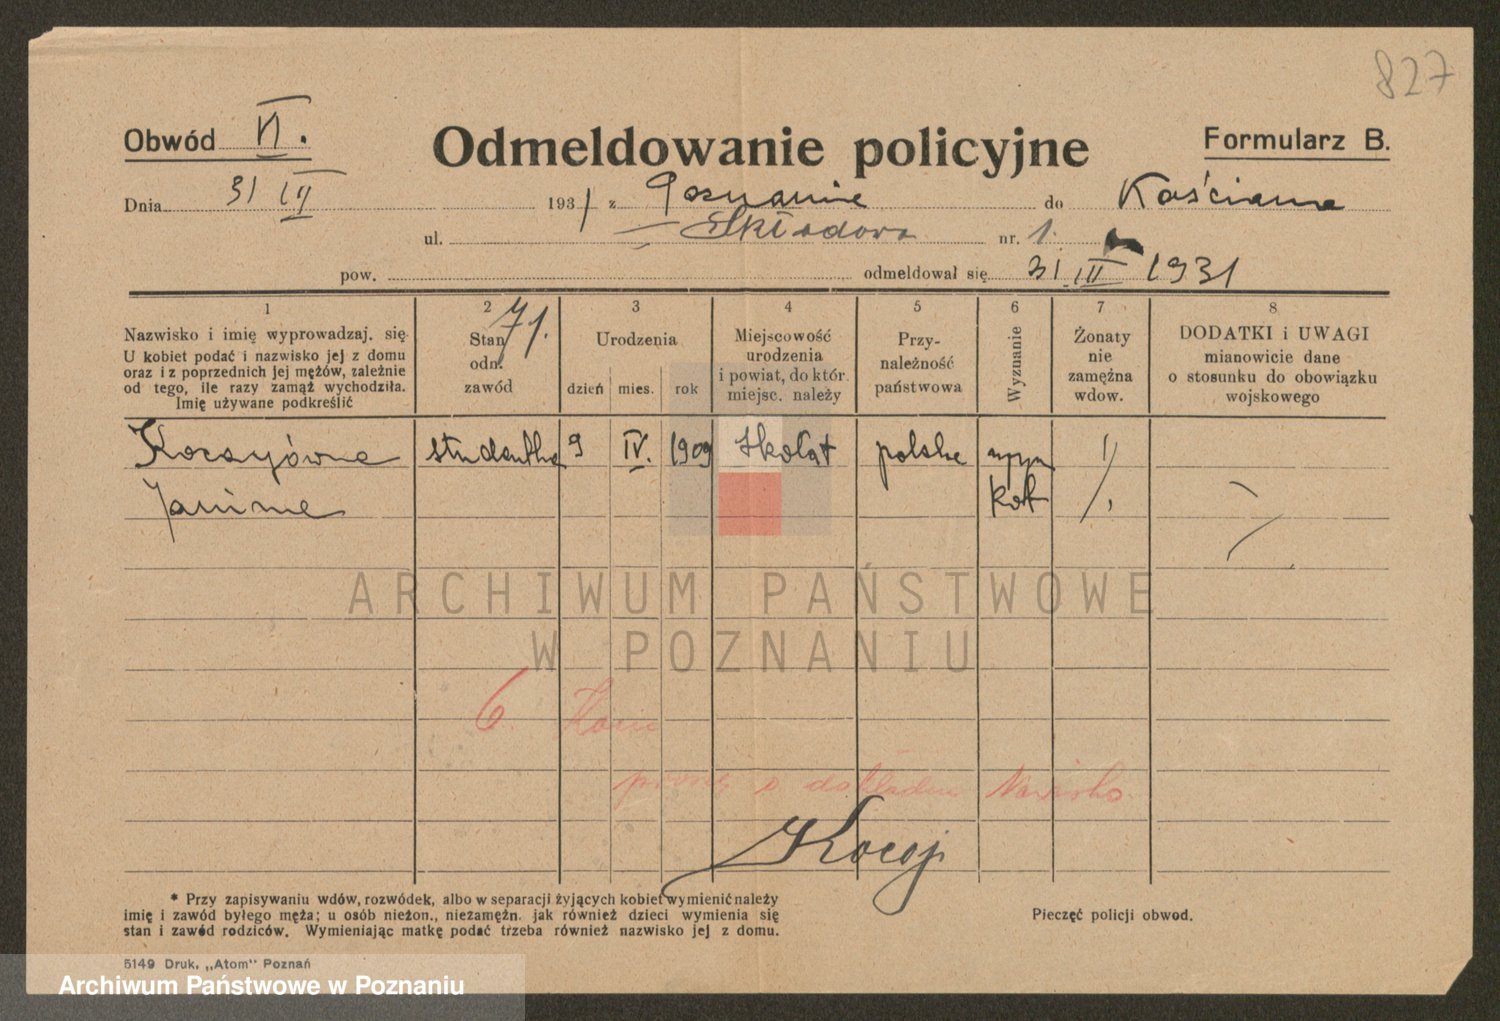 827
Obwód VI.
Odmeldowanie policyjne
Formularz B.
Dnia 31 III 1931 z Poznania do Kościana
ul. Składowa nr. 1.
pow. odmeldował się 31 III 1931
1 2 3 4 5 6 7 8
71.
Nazwisko i imię wyprowadzaj. się
U kobiet podać i nazwisko jej z domu
oraz i z poprzednich jej mężów, zależnie
od tego, ile razy zamąż wychodziła.
Imię używane podkreślić
Stan
odn.
zawód
Urodzenia
dzień mies. rok
Miejscowość
urodzenia
i powiat, do któr.
miejsc. należy
Przy-
należność
państwowa
Wyznanie
Żonaty
nie
zamężna
wdow.
DODATKI i UWAGI
mianowicie dane
o stosunku do obowiązku
wojskowego
studentka 9 IV. 1909 polska rzym
Janina kat
ARCHIWUM PAŃSTWOWE
W POZNANIU
6.
proszę o
* Przy zapisywaniu wdów, rozwódek, albo w separacji żyjących kobiet wymienić należy
imię i zawód byłego męża; u osób nieżon., niezamężn. jak również dzieci wymienia się
stan i zawód rodziców. Wymieniając matkę podać trzeba również nazwisko jej z domu.
Pieczęć policji obwod.
5149 Druk. „Atom" Poznań
Archiwum Państwowe w Poznaniu